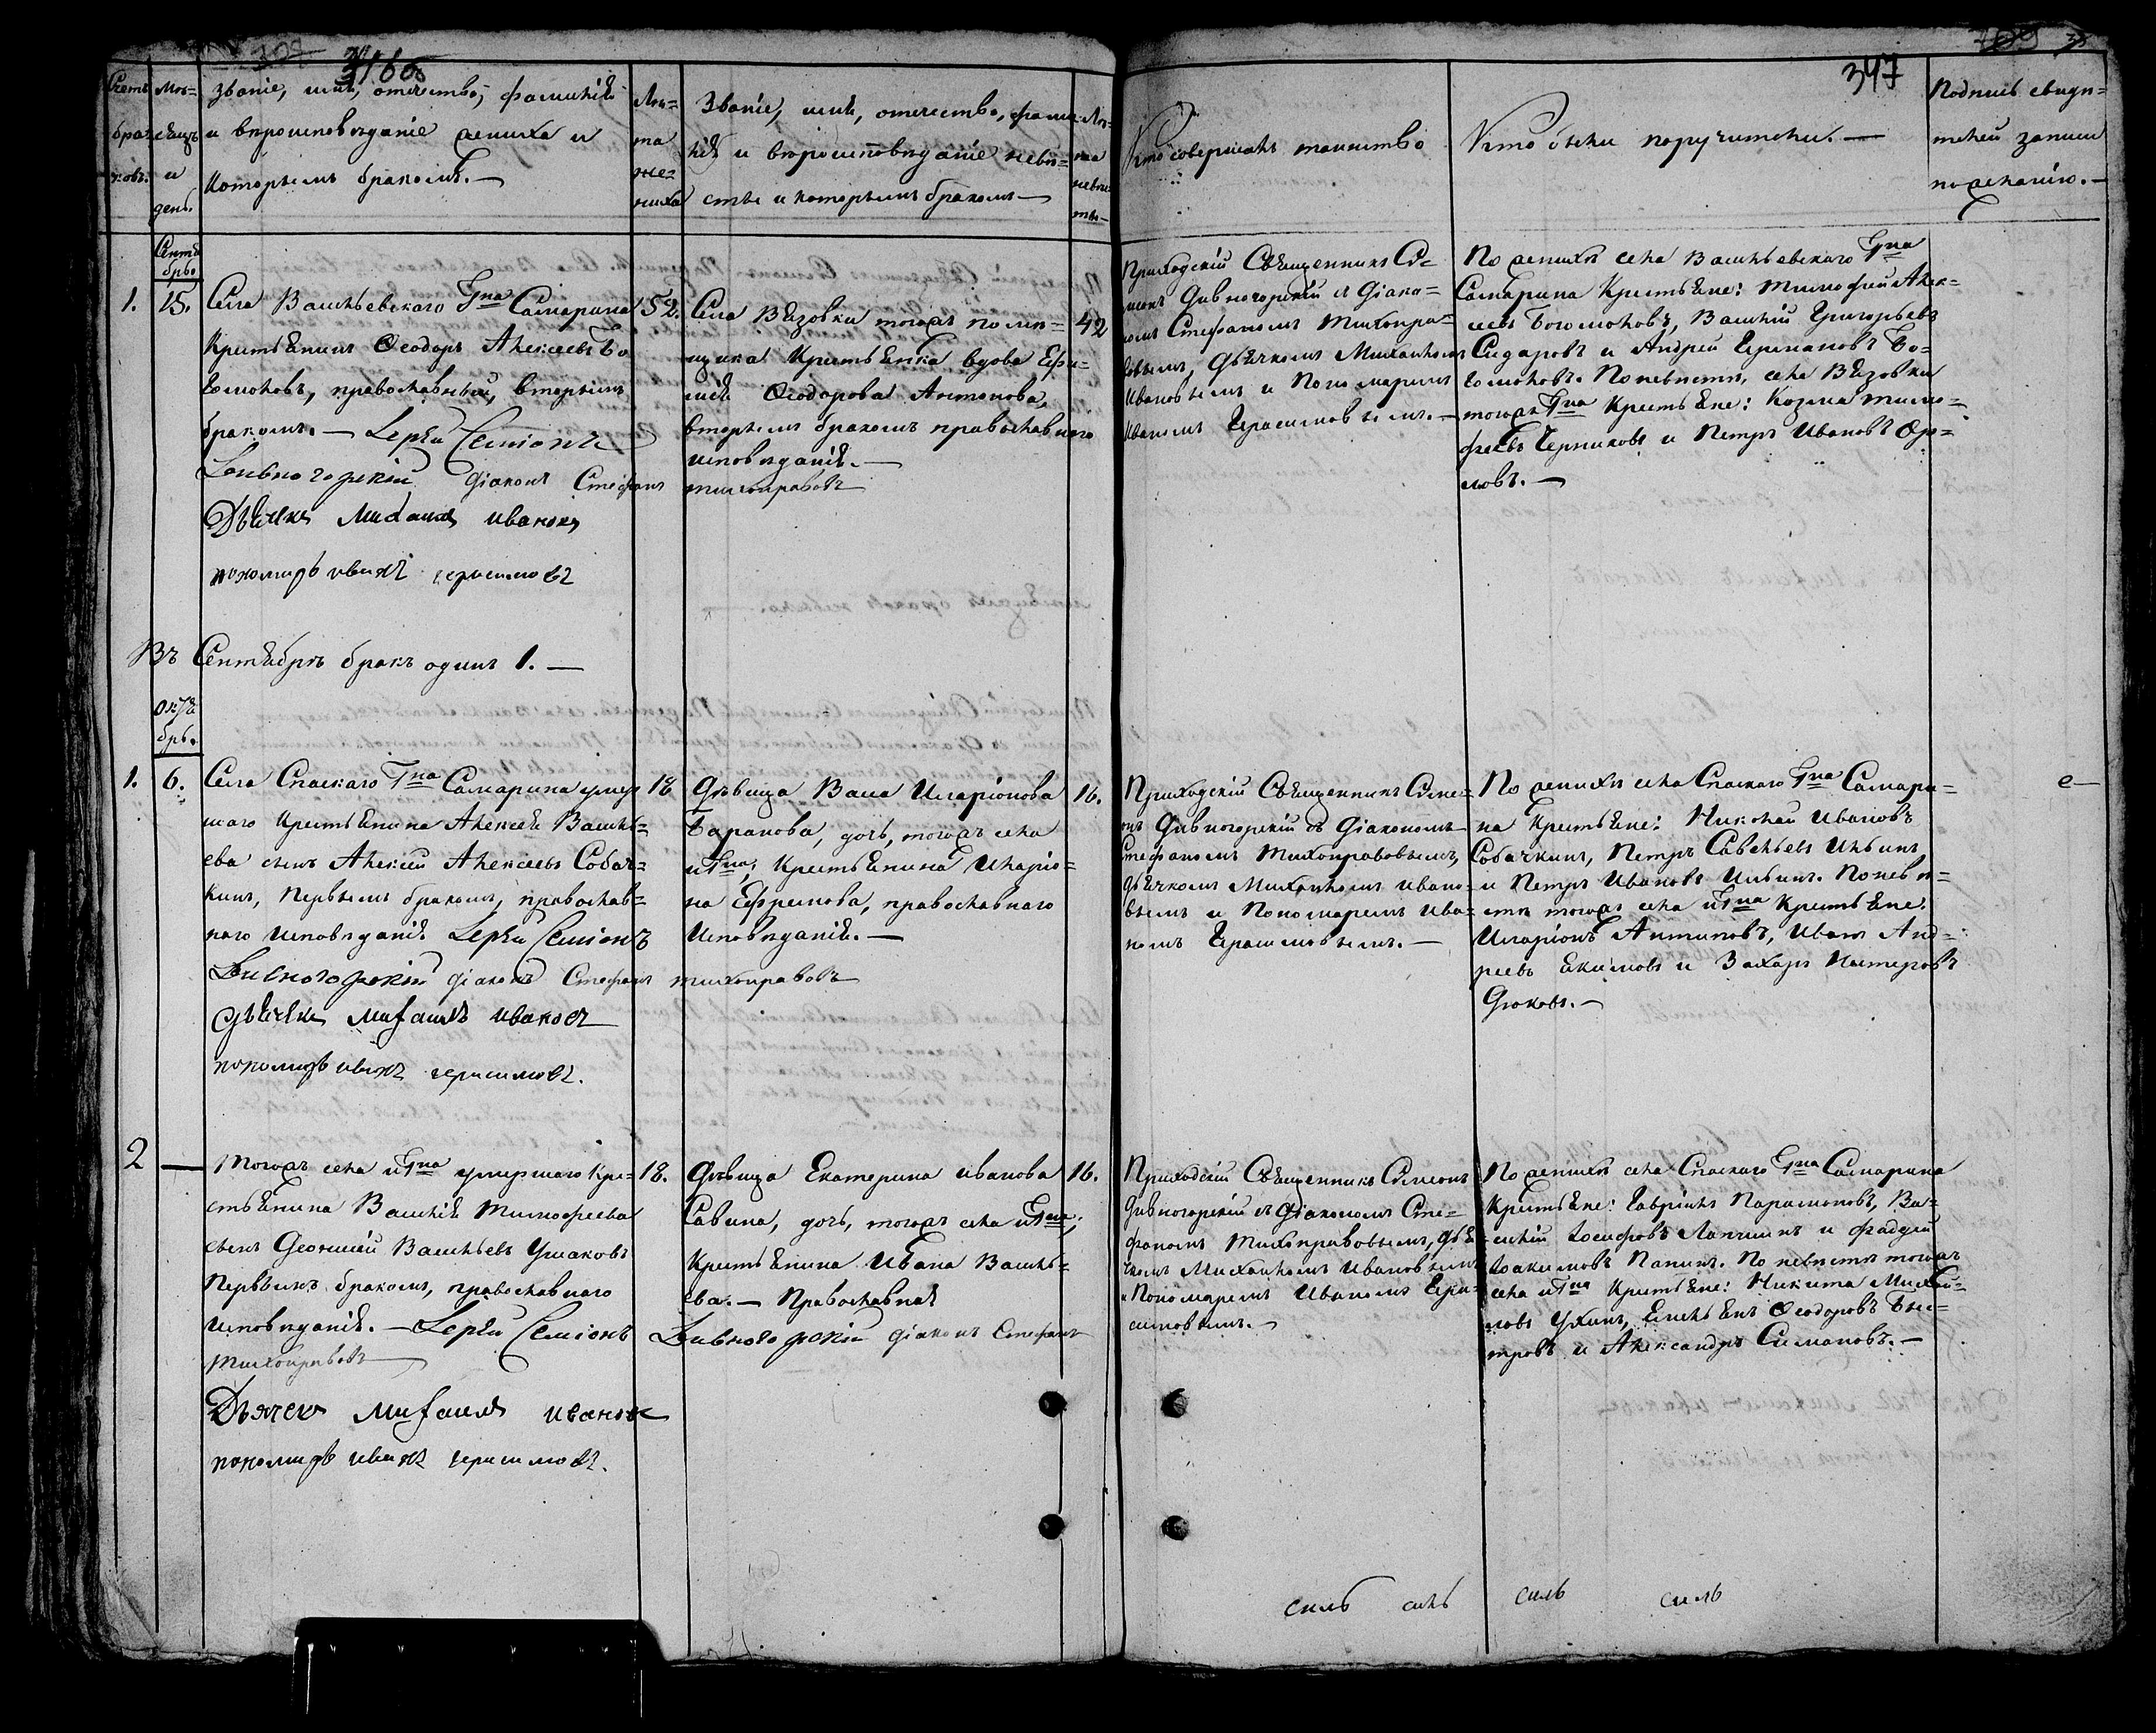 346об
347
Счетъ
браковъ.
Мѣсяцъ
и
день.
Званіе, имя, отчество, фамилія
и вѣроисповѣданіе жениха и
которымъ бракомъ.—
Лѣта
жениха
Званіе, имя, отчество, фами-
лія и вѣроисповѣданіе невѣ=
сты и которымъ бракомъ—
Лѣта
невѣсты—
Кто совершалъ таинство
Кто были поручители.—
Подпись свидѣ=
телей записи
по желанію.—
Сентя
брь
1. 15.
Села Васильевскаго Гна Самарина
крестьянинъ Ѳеодоръ Алексѣевъ Бо
гомоловъ, православный, вторымъ
бракомъ.— Іерей Симіонъ
Дивногорскій діаконъ Стефанъ
Дьячекъ Михаилъ Ивановъ
пономарь Иванъ Герасимовъ
52.
Села Вязовки тогожъ помѣ=
щика крестьянка вдова Ефи=
мія Ѳеодорова Антонова,
вторымъ бракомъ православнаго
исповѣданія.—
Тихоправовъ
42
Приходскій Священникъ Си=
меонъ Дивногорскій съ Діако=
номъ Стефаномъ Тихопра=
вовымъ, Дьячкомъ Михаиломъ
Ивановымъ и Пономаремъ
Иваномъ Герасимовымъ.—
По женихѣ села Васильевскаго Гна
Самарина Крестьяне: Тимофей Алек=
сѣевъ Богомоловъ, Василій Григорьевъ
Сидаровъ и Андрей Бо=
гомоловъ. По невѣстѣ, села Вязовки
тогожъ Гна Крестьяне: Козма Тимо=
феевъ Черниковъ и Петръ Ивановъ Ор=
ловъ.—
Въ Сентябрѣ бракъ одинъ 1.—
Октя
брь.
1. 6.
Села Спаскаго Гна Самарина умер
шаго крестьянина Алексѣя Василь=
ева сынъ Алексѣй Алексѣевъ Собач=
кинъ, первымъ бракомъ, православ=
наго исповѣданія. Іерей Симіонъ
Дивногорскій діаконъ Стефанъ
Дьячекъ Михаилъ Ивановъ
пономарь Иванъ Герасимовъ.
18
Дѣвица Васа Иларіонова
Баранова, дочь, тогожъ села
и Гна, крестьянина Иларіо=
на Ефремова, православнаго
Исповѣданія.—
Тихоправовъ
16.
Приходскій Священникъ Симе=
онъ Дивногорскій съ Діакономъ
Стефаномъ Тихоправовымъ,
Дьячкомъ Михаиломъ Ивано=
вымъ и Пономаремъ Ива=
номъ Герасимовымъ.—
По женихѣ села Спаскаго Гна Самари=
на Крестьяне: Николай Ивановъ
Собачкинъ, Петръ Савельевъ Ильинъ
и Петръ Ивановъ Ильинъ. По невѣ=
стѣ тогожъ села и Гна Крестьяне:
Иларіонъ Антиповъ, Иванъ Анд=
реевъ Екимовъ и Захаръ Нестеровъ
Дюковъ.—
2 —
Тогожъ села и Гна умершаго Кре=
стьянина Василія Тимофеева
сынъ Деонисій Васильевъ Ушаковъ
Первымъ бракомъ, православнаго
исповѣданія.— Іерей Симіонъ
Дивногорскій діаконъ Стефанъ
Тихоправовъ
Дьячекъ Михаилъ Ивановъ
пономарь Иванъ Герасимовъ.
18.
Дѣвица Екатерина Иванова
Савина, дочь, тогожъ села и Гна,
крестьянина Ивана Василь=
ева.— Православная
16.
Приходскій Священникъ Симеонъ
Дивногорскій съ Діакономъ Сте=
фаномъ Тихоправовымъ, Дья
чкомъ Михаиломъ Ивановымъ
и Пономаремъ Иваномъ Гера=
симовымъ.—
По женихѣ села Спаскаго Гна Самарина
Крестьяне: Гавріилъ Парамоновъ, Ва=
силій Іосифовъ Лапшинъ и Фадѣй
Іоакимовъ Панинъ. По невѣстѣ тогожъ
села и Гна Крестьяне: Никита Михай=
ловъ Ухинъ, Емельянъ Ѳеодоровъ Бы=
тровъ и Александръ Симановъ.—
силь силь силь силь